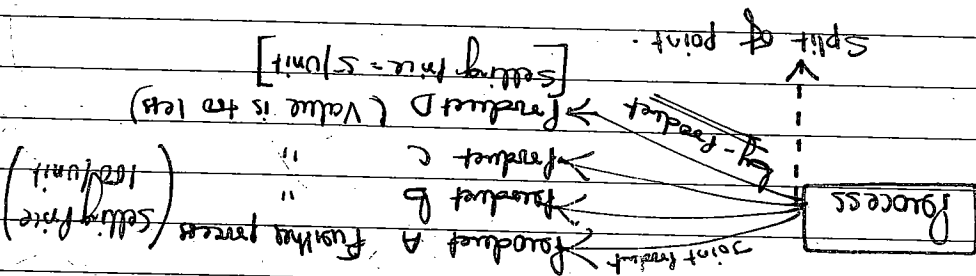 Joint Product
Product A Further process (Selling Price
100/unit)
Process
Product B "
Product C "
By-Product
Product D (Value is too less)
[Selling Price = 5/unit]
Split of point.